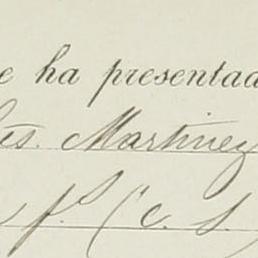 e ha presentad
es. Martinez
f. (c. S.